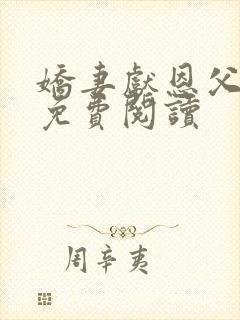 嬌妻獻恩父
免費閱讀
周辛夷